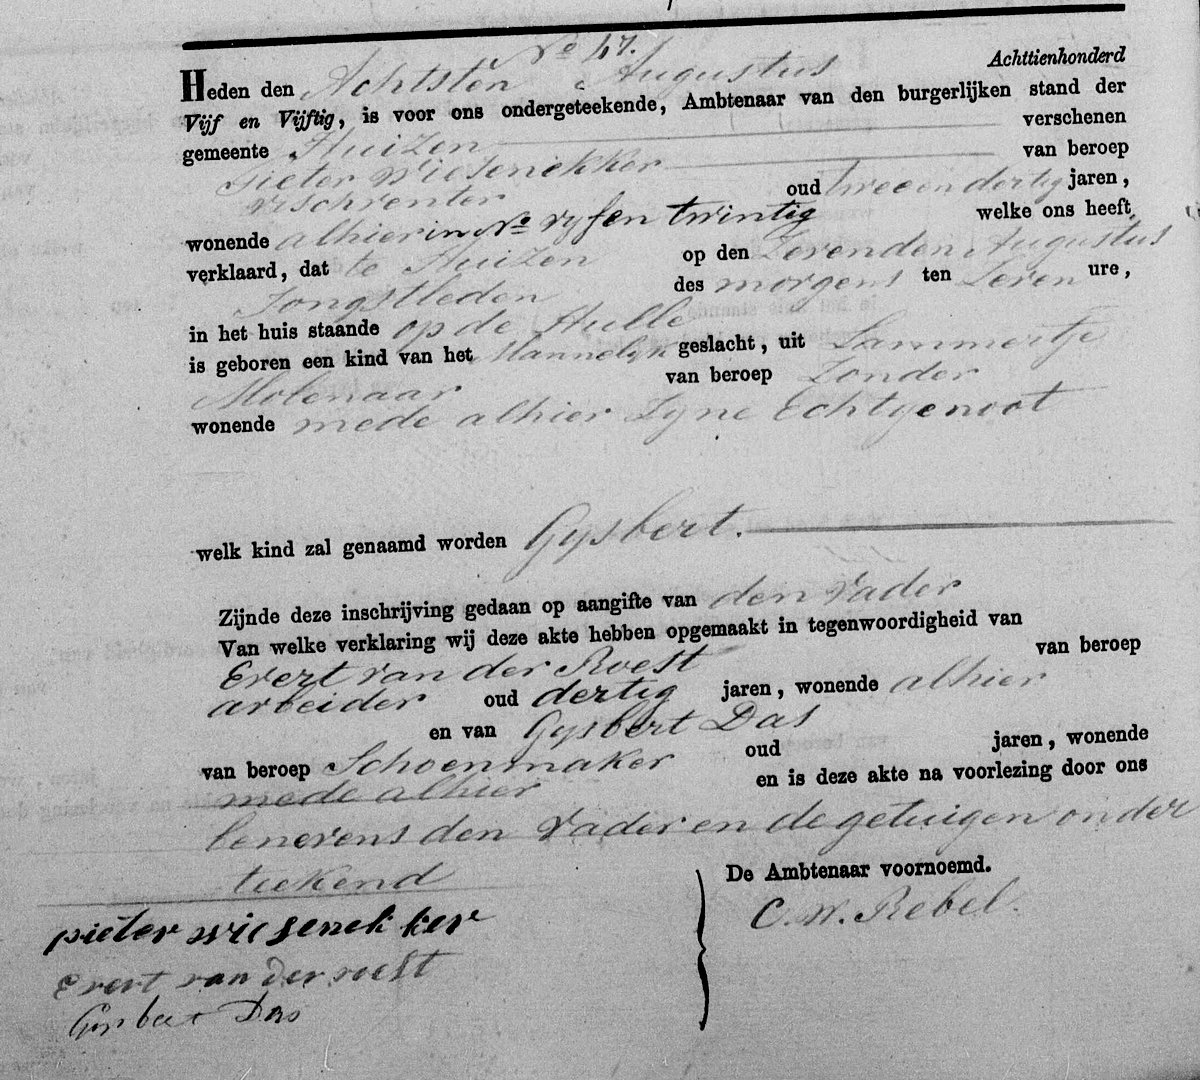 No 47.
Heden den Achtsten Augustus Achttienhonderd
Vijf en Vijftig, is voor ons ondergeteekende, Ambtenaar van den burgerlijken stand der
gemeente Huizen verschenen
Pieter Wiesenekker van beroep
vischventer oud twee en dertig jaren,
wonende alhier in No vyf en twintig welke ons heeft
verklaard, dat te Huizen op den Zevenden Augustus
Jongstleden des morgens ten Zeven ure,
in het huis staande op de Hulle
is geboren een kind van het Mannelyk geslacht, uit Lammertje
Molenaar van beroep Zonder
wonende mede alhier Zyne Echtgenoot
welk kind zal genaamd worden Gysbert.
Zijnde deze inschrijving gedaan op aangifte van den Vader
Van welke verklaring wij deze akte hebben opgemaakt in tegenwoordigheid van
Evert van der Roest van beroep
arbeider oud dertig jaren, wonende alhier
en van Gysbert Das
van beroep Schoenmaker oud jaren, wonende
mede alhier en is deze akte na voorlezing door ons
benevens den Vader en de getuigen onder
teekend
De Ambtenaar voornoemd.
C. W. Rebel.
pieter wiesenekker
Evert van der roest
Gysbert Das